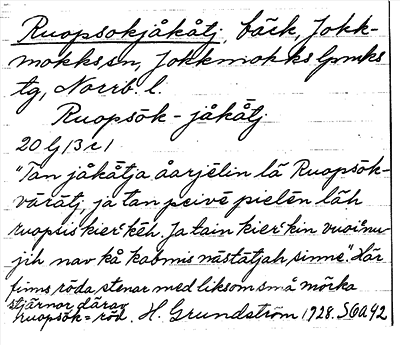 Ruopsokjåkåtj, bäck, Jokk-
mokks sn, Jokkmokks lpmks
tg, Norrb. l.
Ruopsōk - jåkåtj
20 g/3 c/1
"Tan jåkåtja åarjēlin lā Ruopsōk-
vārātj, ja tan peivē pielēn lāh
ruopsis kier'kēh. Ja tain kier'kin vuoi'nu-
jih nav kå kabmis nāstātjah sinne." Här
finns röda stenar med liksom små mörka
stjärnor därav
ruopsōk = röd. H. Grundström 1928. SOÄ 42